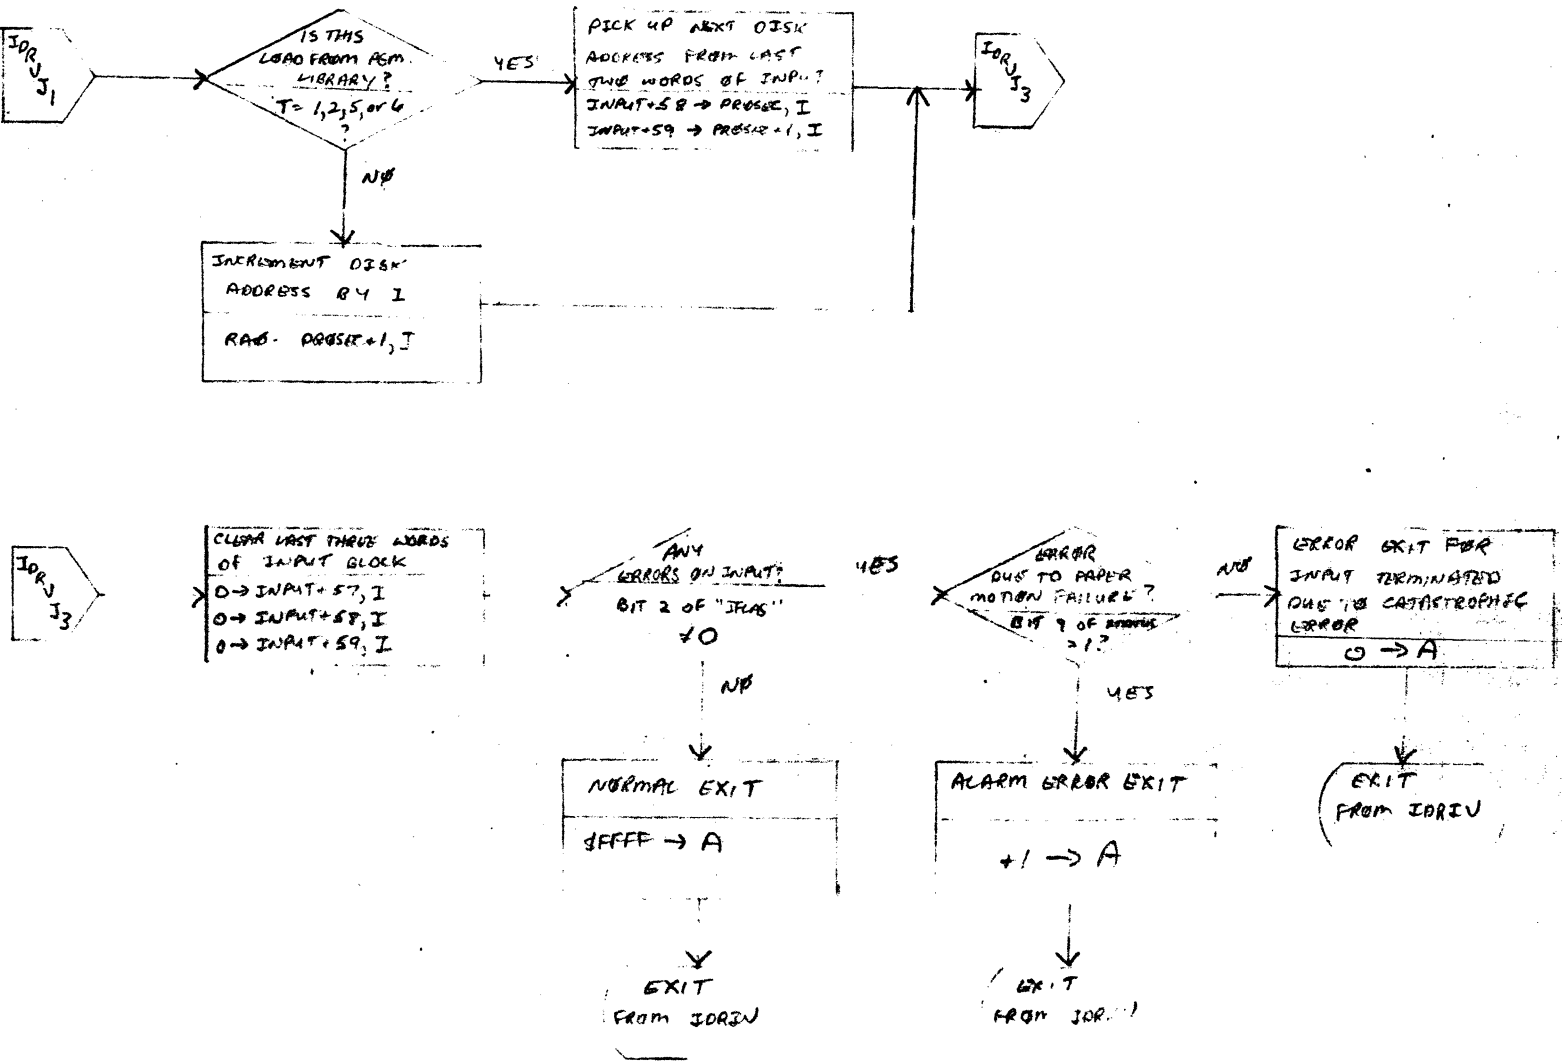 IDRVJ1
IS THIS
LOAD FROM PGM.
LIBRARY?
T= 1,2,5, or 6
?
YES
PICK UP NEXT DISK
ADDRESS FROM LAST
TWØ WORDS ØF INPUT
INPUT+58 → PRØSEC, I
INPUT+59 → PRØSEC+1, I
IDRVJ3
NØ
INCREMENT DISK
ADDRESS BY I
RAØ- PRØSEC+1, I
IDRVJ3
CLEAR LAST THREE WORDS
OF INPUT BLOCK
0→ INPUT+57, I
0→ INPUT+58, I
0→ INPUT+59, I
ANY
ERRORS ON INPUT?
BIT 2 OF "IFLAG"
≠0
YES
ERRØR
DUE TO PAPER
MOTION FAILURE?
BIT 9 OF
=1?
NØ
ERRØR EXIT FØR
INPUT TERMINATED
DUE TØ CATASTROPHIC
ERRØR
0 → A
NØ
YES
NØRMAL EXIT
$FFFF → A
ALARM ERRØR EXIT
+1 → A
EXIT
FRØM IDRIV
EXIT
FRØM IDRIV
EXIT
FRØM